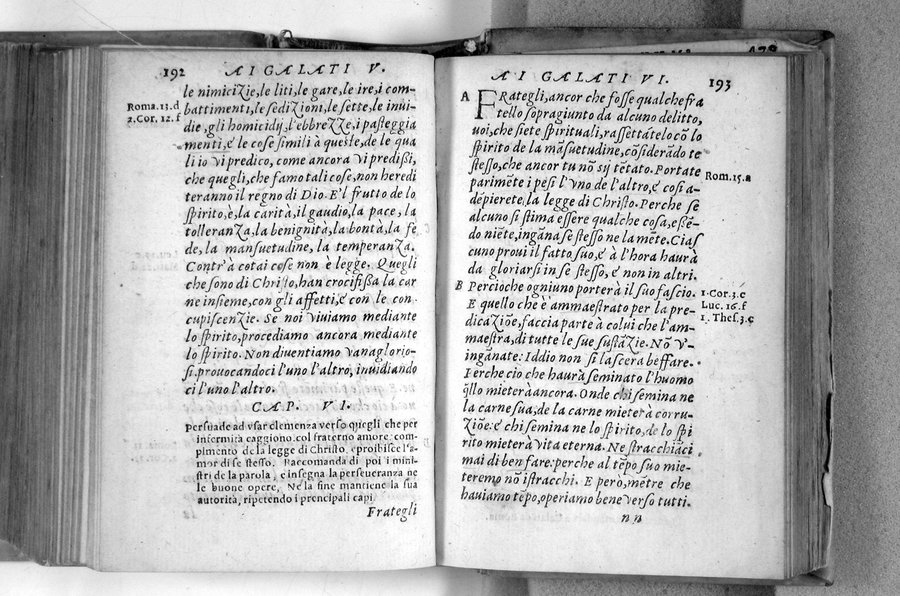 192 AI GALATI V.
le nimicizie,le liti,le gare,le ire,i com-
Roma.13.d
battimenti,le sedizioni,le sette,le inui-
2.Cor.12.f
die,gli homicidij,l'ebbrezze,i pasteggia
menti,e le cose simili à queste,de le qua
li io vi predico, come ancora vi predißi,
che quegli,che fāno tali cose,non heredi
teranno il regno di Dio. E'l frutto de lo
spirito,è,la carità,il gaudio,la pace, la
tolleranza,la benignità,la bontà,la fe
de, la mansuetudine, la temperanza.
Contr'à cotai cose non è legge. Quegli
che sono di Christo,han crocifißa la car
ne insieme,con gli affetti,e con le con
cupiscenzie. Se noi viuiamo mediante
lo spirito,procediamo ancora mediante
lo spirito. Non diuentiamo vanaglorio-
si,prouocandoci l'uno l'altro, inuidiando
ci l'uno l'altro.
CAP. VI.
Persuade ad vsar clemenza verso quegli che per
infermità caggiono.col fraterno amore com-
pimento de la legge di Christo. e proibisce l'a-
mor di se stesso. Raccomanda di poi i mini-
stri de la parola, e insegna la perseueranza ne
le buone opere. Ne la fine mantiene la sua
autorità, ripetendo i prencipali capi.
Frategli
AI GALATI VI. 193
A FRategli,ancor che fosse qualche fra
tello sopragiunto da alcuno delitto,
uoi,che siete spirituali,rassettatelo cō lo
spirito de la māsuetudine, cōsiderādo te
stesso,che ancor tu nō sij tētato. Portate
Rom.15.a
parimēte i pesi l'vno de l'altro,e cosi a-
dēpierete la legge di Christo. Perche se
alcuno si stima essere qualche cosa,essē-
do niēte,ingāna se stesso ne la mēte. Cias
cuno proui il fatto suo, e à l'hora haurà
da gloriarsi in se stesso, e non in altri.
B Percioche ogniuno porterà il suo fascio.
1.Cor.3.c
E quello che è ammaestrato per la pre-
Luc.16.f
dicaziōe,faccia parte à colui che l'am-
1.Thes.3.c
maestra,di tutte le sue sustāzie. Nō v'-
ingānate: Iddio non si lascera beffare.
Perche cio che haurà seminato l'huomo
q̄llo mieterà ancora. Onde chi semina ne
la carne sua,de la carne mieterà corru-
ziōe: e chi semina ne lo spirito,de lo spi
rito mieterà vita eterna. Ne stracchiāci
mai di ben fare: perche al tēpo suo mie-
teremo nō istracchi. E però,mētre che
hauiamo tēpo,operiamo bene verso tutti.
nn